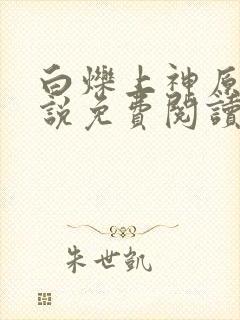 白爍上神原
說免費閱讀
朱世凱